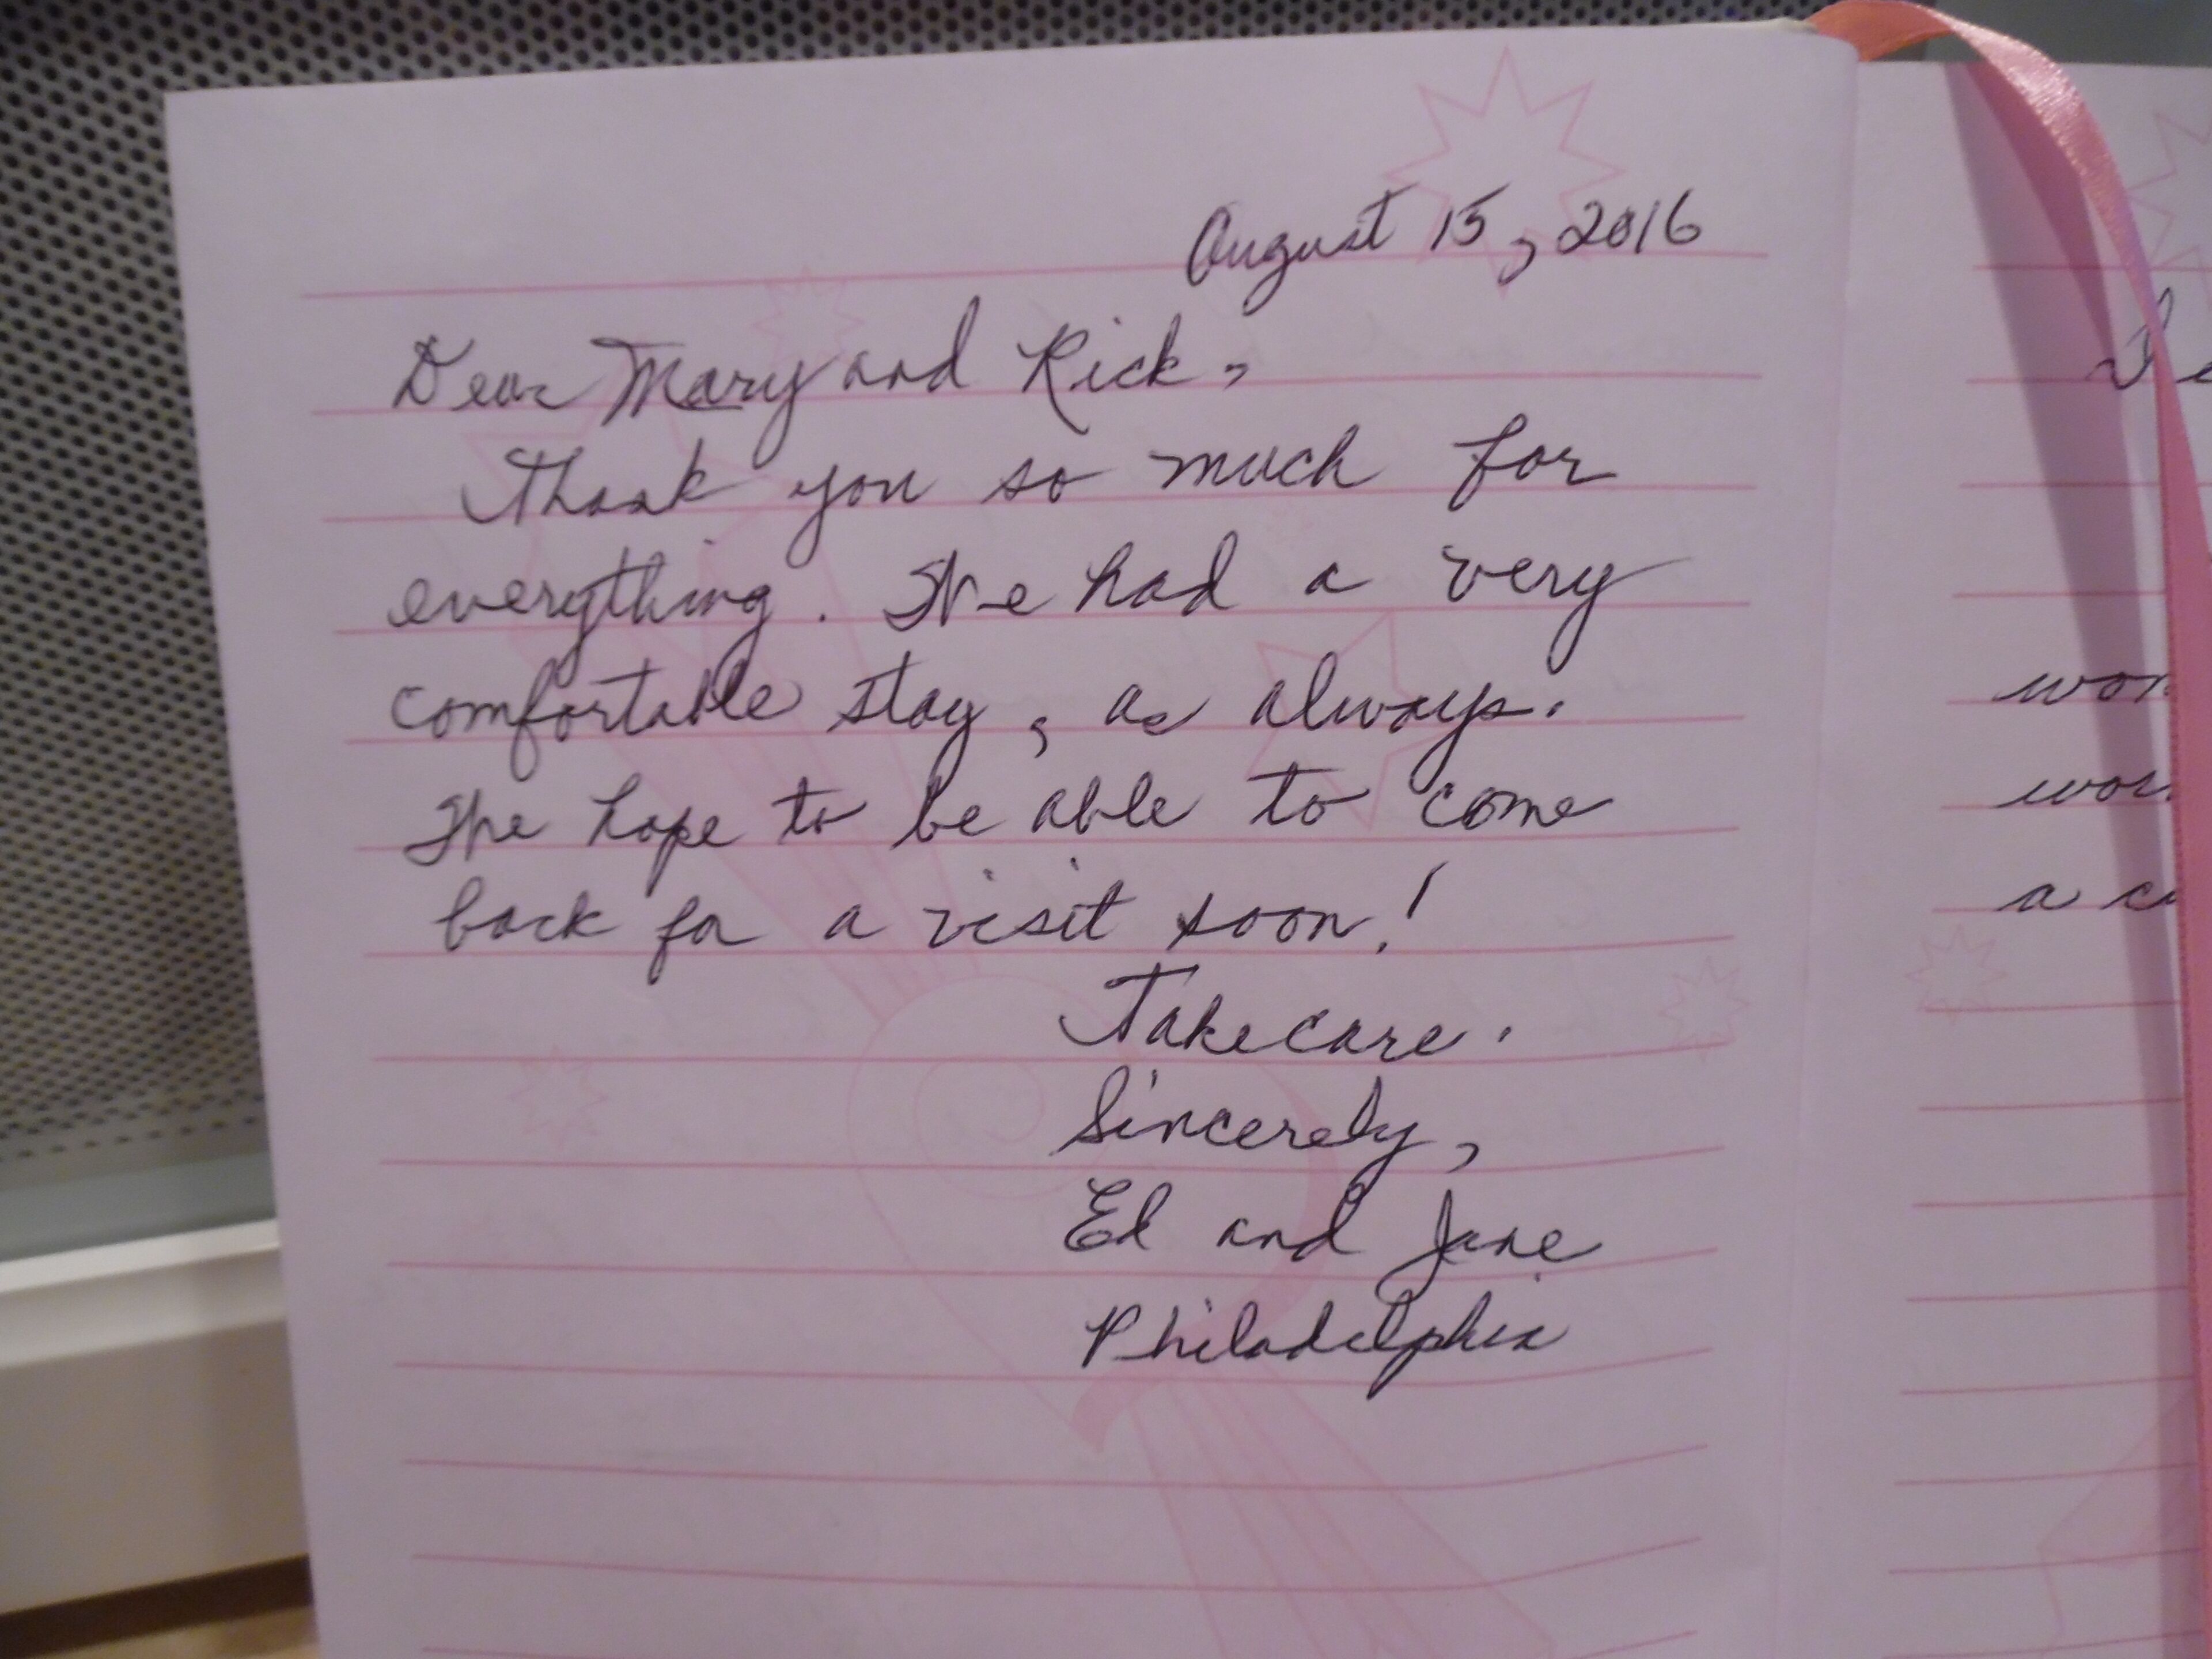 August 15, 2016
Dear Mary and Rick,
Thank you so much for
everything. We had a very
comfortable stay, as always.
We hope to be able to come
back for a visit soon!
Take care.
Sincerely,
Ed and Jane
Philadelphia
a